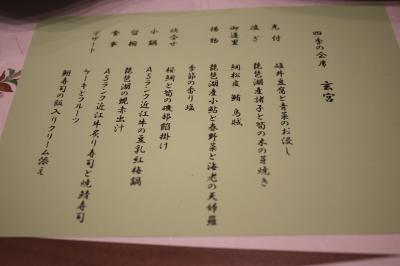 四季の会席 玄宮
先付 雄井豆腐と青菜のお浸し
凌ぎ 琵琶湖産諸子と筍の木の芽焼き
御造里 鯛松皮 鮪 烏賊
揚物 琵琶湖産小鮎と春野菜と海老の天婦羅
季節の香り塩
焼合せ 桜鯛と筍の磯部餡掛け
小鍋 A5ランク近江牛の豆乳紅梅鍋
留椀 琵琶湖の蜆赤出汁
食事 A5ランク近江牛炙り寿司と焼鯖寿司
デザート ケーキとフルーツ
鮒寿司の飯入りクリーム添え